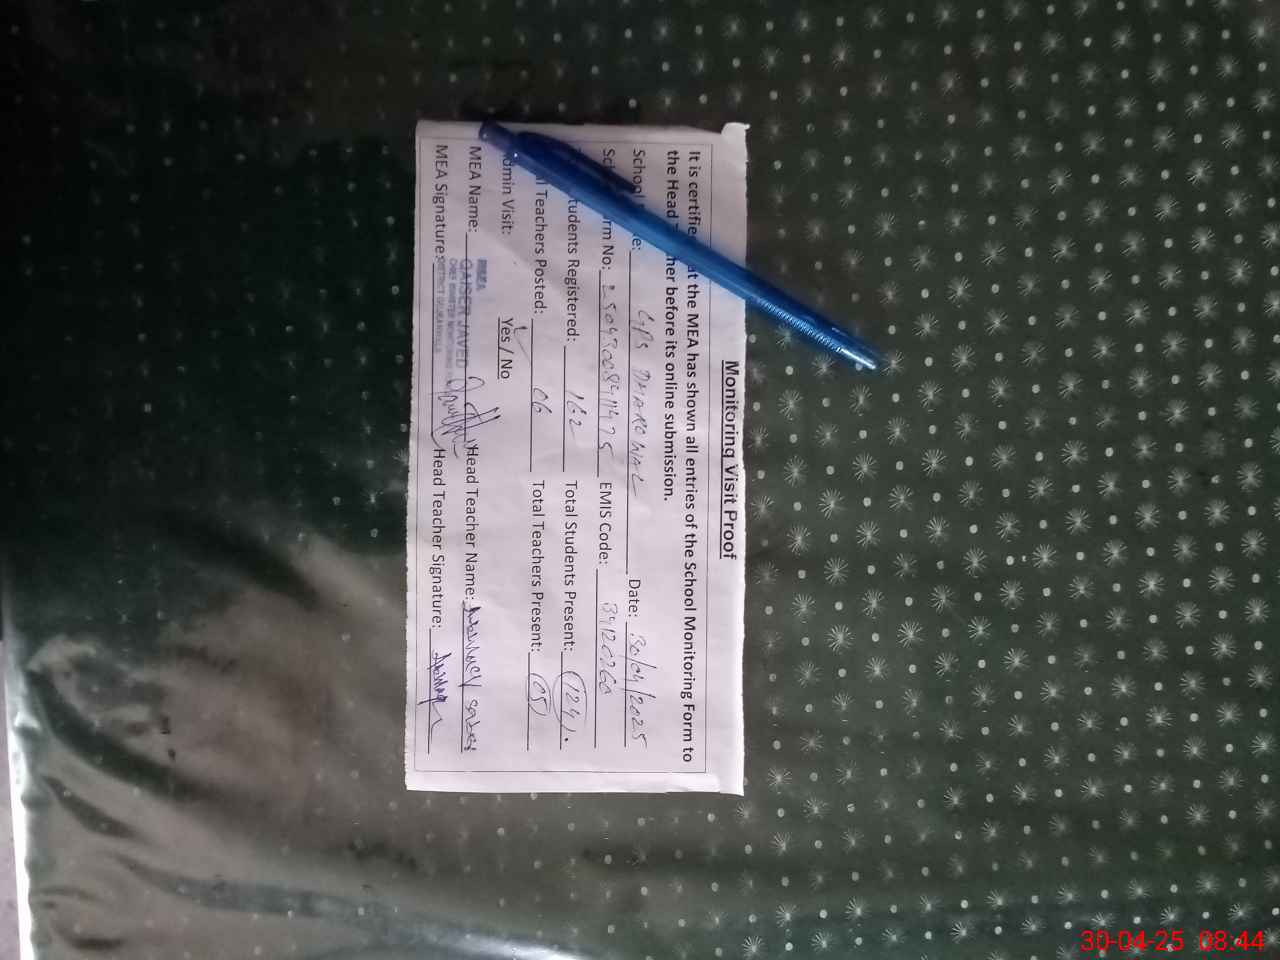 Monitoring Visit Proof
It is certifie at the MEA has shown all entries of the School Monitoring Form to
the Head her before its online submission.
School e: GPS DHAROWAL Date: 30/04/2025
Sch rm No: EMIS Code: 34120260
tudents Registered: 162 Total Students Present: 124
l Teachers Posted: 06 Total Teachers Present: 05
dmin Visit: Yes / No
MEA Name: QAISER JAVED Head Teacher Name:
MEA Signature: Head Teacher Signature:
MEA
CHIEF MINISTER MONITORING
DISTRICT GUJRANWALA
30-04-25 08:44